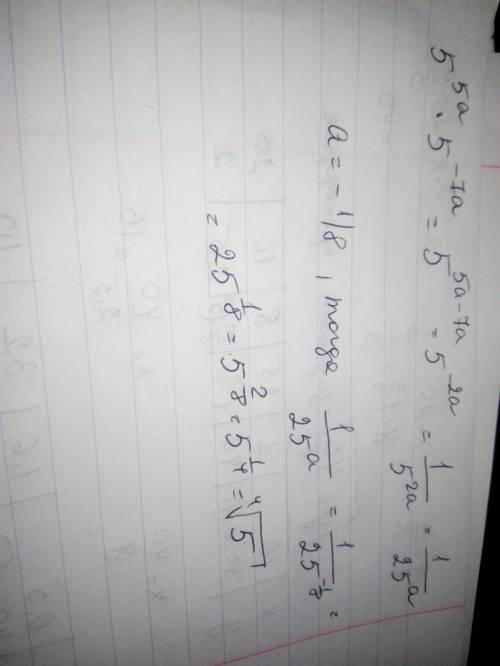 5^{5a} · 5^{-7a} = 5^{5a-7a} = 5^{-2a} = \frac{1}{5^{2a}} = \frac{1}{25^{a}}
a = -1/8, тогда \frac{1}{25^{a}} = \frac{1}{25^{-\frac{1}{8}}} =
= 25^{\frac{1}{8}} = 5^{\frac{2}{8}} = 5^{\frac{1}{4}} = \sqrt[4]{5}